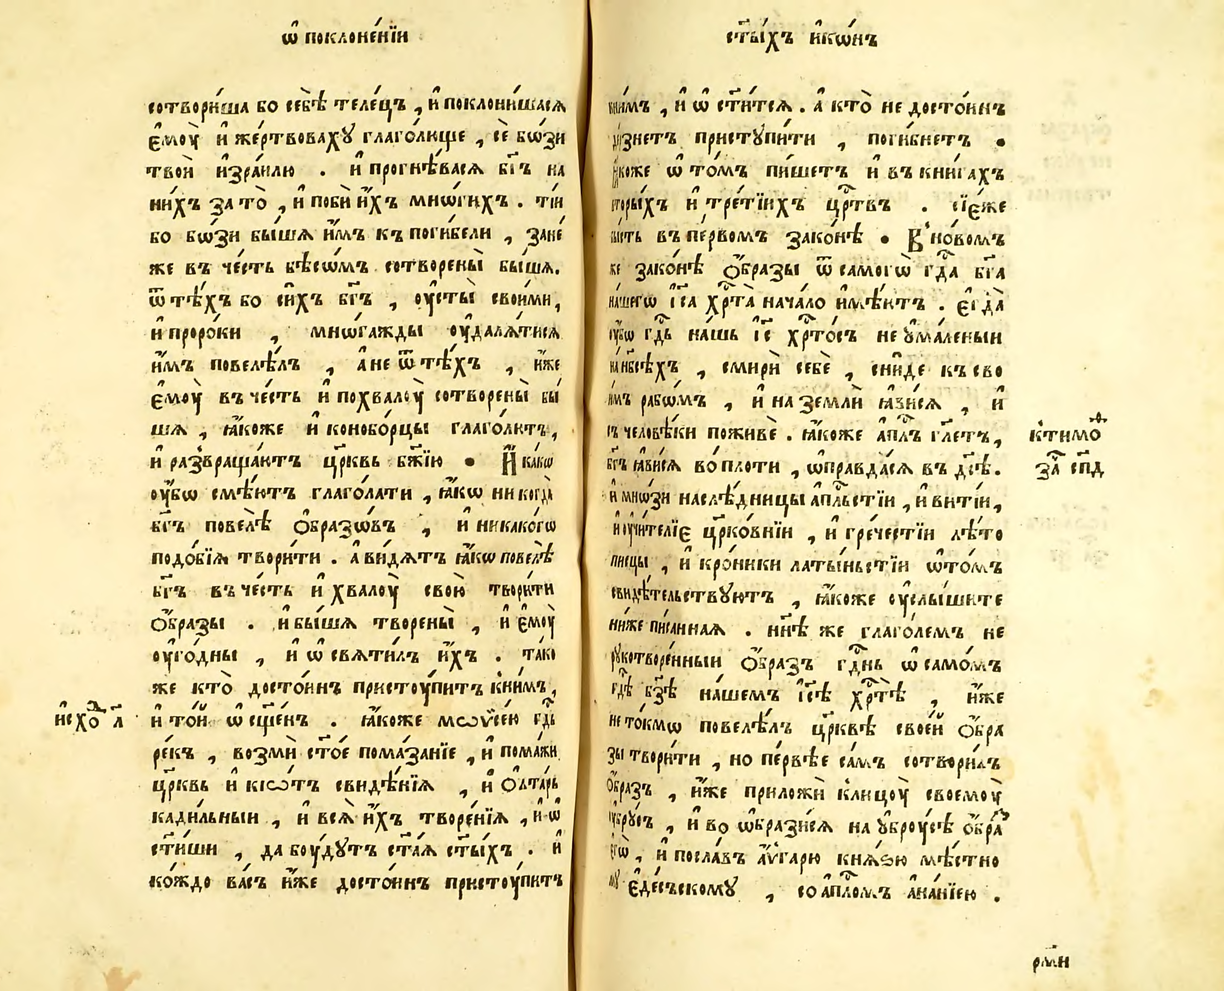 ѡ҆ поклоне́нїи
сотвори́ша бо себѣ̀ теле́цъ , и҆ поклони́шасѧ
є҆моу̀ и҆ же́ртвовахꙋ глаго́люще , се́ бѡ́зи
твоѝ и҆зра́илю . и҆ прогнѣ́васѧ бг҃ъ на
ни́хъ за то̀ , и҆ побѝ и҆́хъ мно́гихъ . ті́и
бо бѡ́зи бы́шѧ и҆̀мъ къ поги́бели , зане́
же въ че́сть бѣсѡ́мъ сотворены̀ бы́шѧ.
ѿ тѣ́хъ бо си́хъ бг҃ъ , оу҆сты̀ свои́ми,
и҆ проро́ки , мнѡ́гажды оу҆далѧ́тисѧ
и҆̀мъ повелѣ́лъ , а҆ не ѿ тѣ́хъ , и҆́же
є҆моу̀ въ че́сть и҆ похвалоу̀ сотворены̀ бы́
шѧ , ꙗ҆́коже и҆коноборцы глаго́лютъ,
и҆ развраща́ютъ цр҃ковь бж҃їю . И҆ ка́кѡ
оу҆́бѡ смѣ́ютъ глаго́лати , ꙗ҆́кѡ никогда̀
бг҃ъ повелѣ̀ ѻ҆́бразѡвъ , и҆ никако́гѡ
подо́бїѧ твори́ти . а҆ ви́дѧтъ ꙗ҆́кѡ повелѣ̀
бг҃ъ въ че́сть и҆ хвалоу̀ свою̀ твори́ти
ѻ҆́бразы . и҆ бы́шѧ творены̀ , и҆ є҆моу̀
оу҆го́дны , и҆ ѡ҆свѧти́лъ и҆́хъ . та́ко
же кто̀ досто́инъ присто́упитъ кни́мъ,
и҆ то́й ѡ҆сщ҃е́нъ . ꙗ҆́коже мѡѷсе́ю гд҃ь
и҆схо́ л҃
ре́къ , возмѝ ст҃о́е пома́занїе , и҆ помажѝ
цр҃ковь и҆ кїѡ́тъ свидѣ́нїѧ , и҆ ѻ҆лта́рь
кади́льныи , и҆ всѧ̀ и҆́хъ творе́нїѧ , и҆ ѡ҆
ст҃и́ши , да боу́дутъ ст҃а́ѧ ст҃ы́хъ . и҆
ко́ждо ва́съ и҆́же досто́инъ присто́упитъ
ст҃ы́хъ и҆кѡ́нъ
кни́мъ , и҆ ѡ҆ст҃и́тсѧ . а҆ кто̀ не досто́инъ
дѣрзнетъ пристꙋпи́ти , поги́бнетъ .
ꙗ҆́коже ѡ҆ то́мъ пи́шетъ и҆ въ кни́гахъ
вторы́хъ и҆ тре́тїихъ цр҃твъ . сїе́же
бы́сть въ пе́рвомъ зако́нѣ . В но́вомъ
же зако́нѣ ѻ҆́бразы ѿ самогѡ̀ гд҃а бг҃а
на́шегѡ і҆с҃а хр҃та̀ нача́ло и҆мѣ́ютъ . є҆гда̀
оу҆́бѡ гд҃ь на́шь і҆с҃ хр҃то́съ не ꙋ҆ма́леныи
на нб҃сѣ́хъ , смирѝ себѐ , сни́де къ сво
и҆́мъ рабѡ́мъ , и҆ на землѝ ꙗ҆ви́сѧ , и҆
съ человѣ́ки поживѐ . ꙗ҆́коже а҆пл҃ъ гл҃етъ,
к тимо́ѳ
бг҃ъ ꙗ҆ви́сѧ во пло́ти , ѡ҆правда́сѧ въ дс҃ѣ.
за́ спд
и҆ мнѡ́зи наслѣ́дницы а҆пл҃ьстїи , и҆ вити́и,
и҆ оу҆чи́телїе цр҃ко́внїи , и҆ гре́честїи лѣ́то
писцы , и҆ кро́ники латы́ньстїи ѡ҆ то́мъ
свидѣ́тельствꙋютъ , ꙗ҆́коже оу҆слы́шите
ни́же пи́санная . нн҃ѣ же глаго́лемъ не
рꙋкотворе́нныи ѻ҆́бразъ гд҃нь ѡ҆ само́мъ
гд҃ѣ бз҃ѣ на́шемъ і҆с҃ѣ хр҃тѣ̀ , и҆́же
не то́кмѡ повелѣ́лъ цр҃квѣ свое́й ѻ҆́бра
зы твори́ти , но пе́рвѣе са́мъ сотвори́лъ
ѻ҆́бразъ , и҆́же приложѝ к лицоу̀ своемоу̀
оу҆бру́съ , и҆ во ѡ҆брази́сѧ на ꙋ҆бро́усѣ ѻ҆́бра
є҆гѡ̀ , и҆ посла́въ а҆ѵга́рю кнѧ́ꙃю мѣ́стно
мꙋ є҆де́съскомꙋ , со а҆пл҃омъ а҆на́нїею .
рм҃и